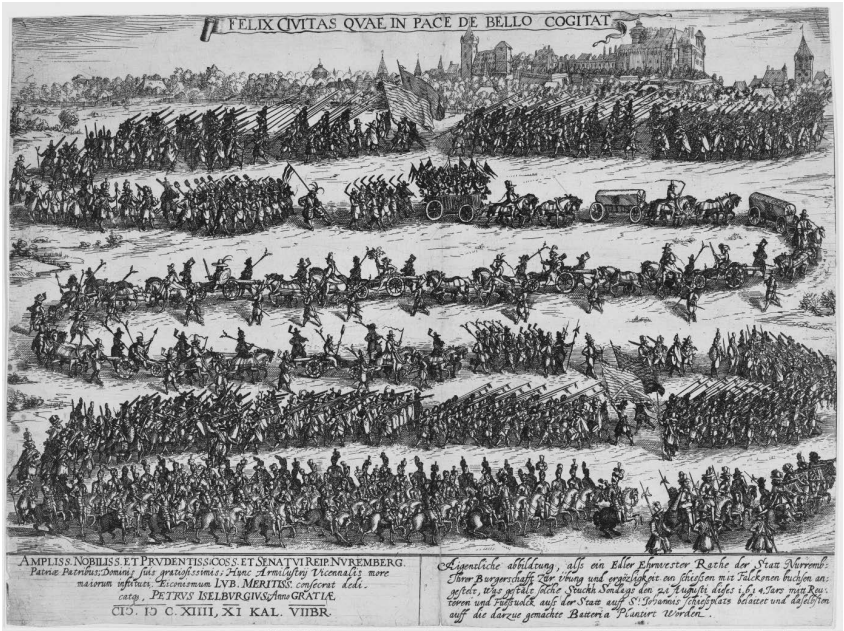 FELIX CIVITAS QVAE IN PACE DE BELLO COGITAT
AMPLISS. NOBILISS. ET PRVDENTISS. COSS. ET SENATVI REIP. NVREMBERG.
Patriæ Patribus; Dominis suis gratiosissimis; Hunc Armilustrÿ Vicennalis more
maiorum instituti, Eiconismum LVB. MERITISS. consecrat dedi-
catq, PETRVS ISELBVRGIVS; Anno GRATIÆ
CIƆ. IƆ C. XIIII, XI KAL. VIIBR.
Aigentliche abbildung, alls ein Edler Ehrnvester Rathe der Statt Nürremb:
Ihrer Burgerschafft Zür übung und ergözligkeit ein schiessen mit Falckonen buchsen an:
gestelt, Was gestalt solche Stuckh Sondags den 21 Augusti dises 1614 Jars mitt Reu:
teren und Fuesvolck auss der Statt auff St. Iohannis schiessplatz belaittet und daselbsten
auff die darzue gemachte Batteria Plantirt Worden.